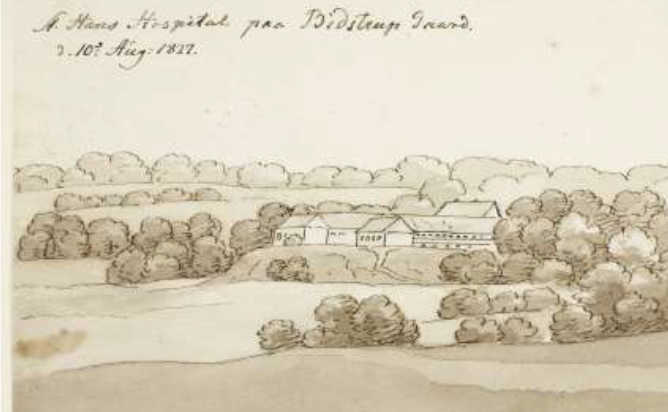 St. Hans Hospital paa Bidstrup Gaard.
d. 10? Aug: 1827.